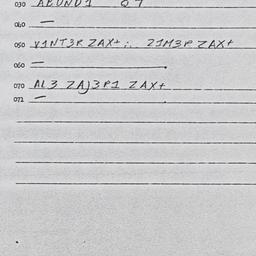 030 ABUND1 Q 7
040 —
050 V1NT3R ZAX+ ;. 21M3P ZAX+
060 —
070 AL3 ZAJ3P1 ZAX+
072 —